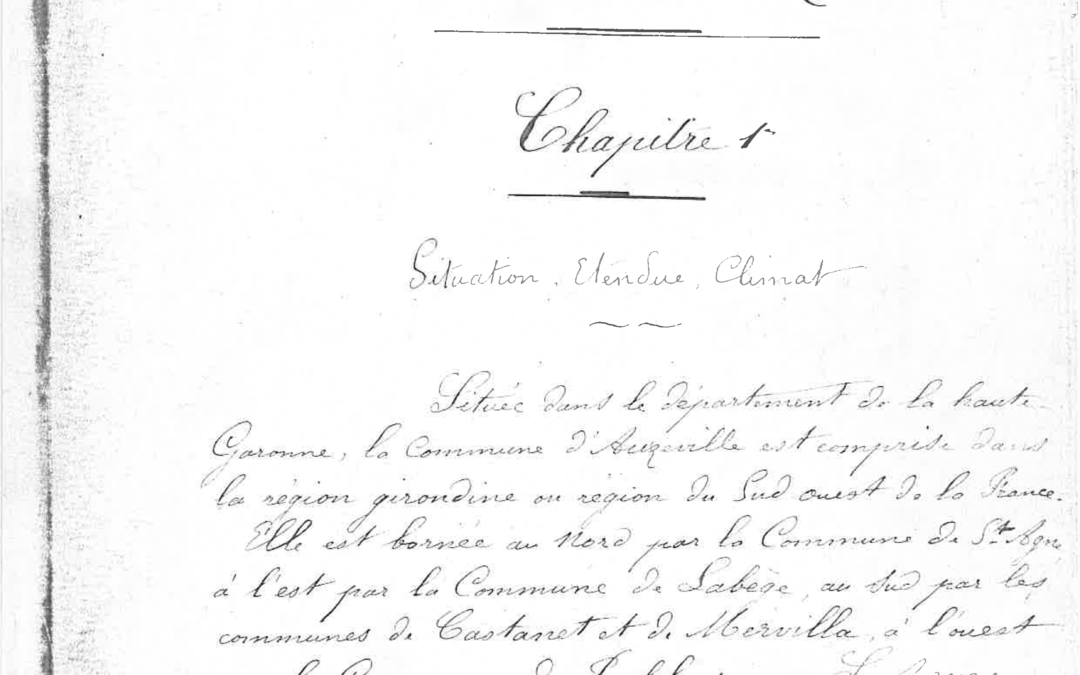 Chapitre 1er
Situation, Etendue, Climat
Située dans le département de la haute
Garonne, la Commune d'Auzeville est comprise dans
la région girondine ou région du Sud ouest de la France.
Elle est bornée au Nord par la Commune de St. Agne
à l'est par la Commune de Labège, au sud par les
communes de Castanet et de Mervilla, à l'ouest